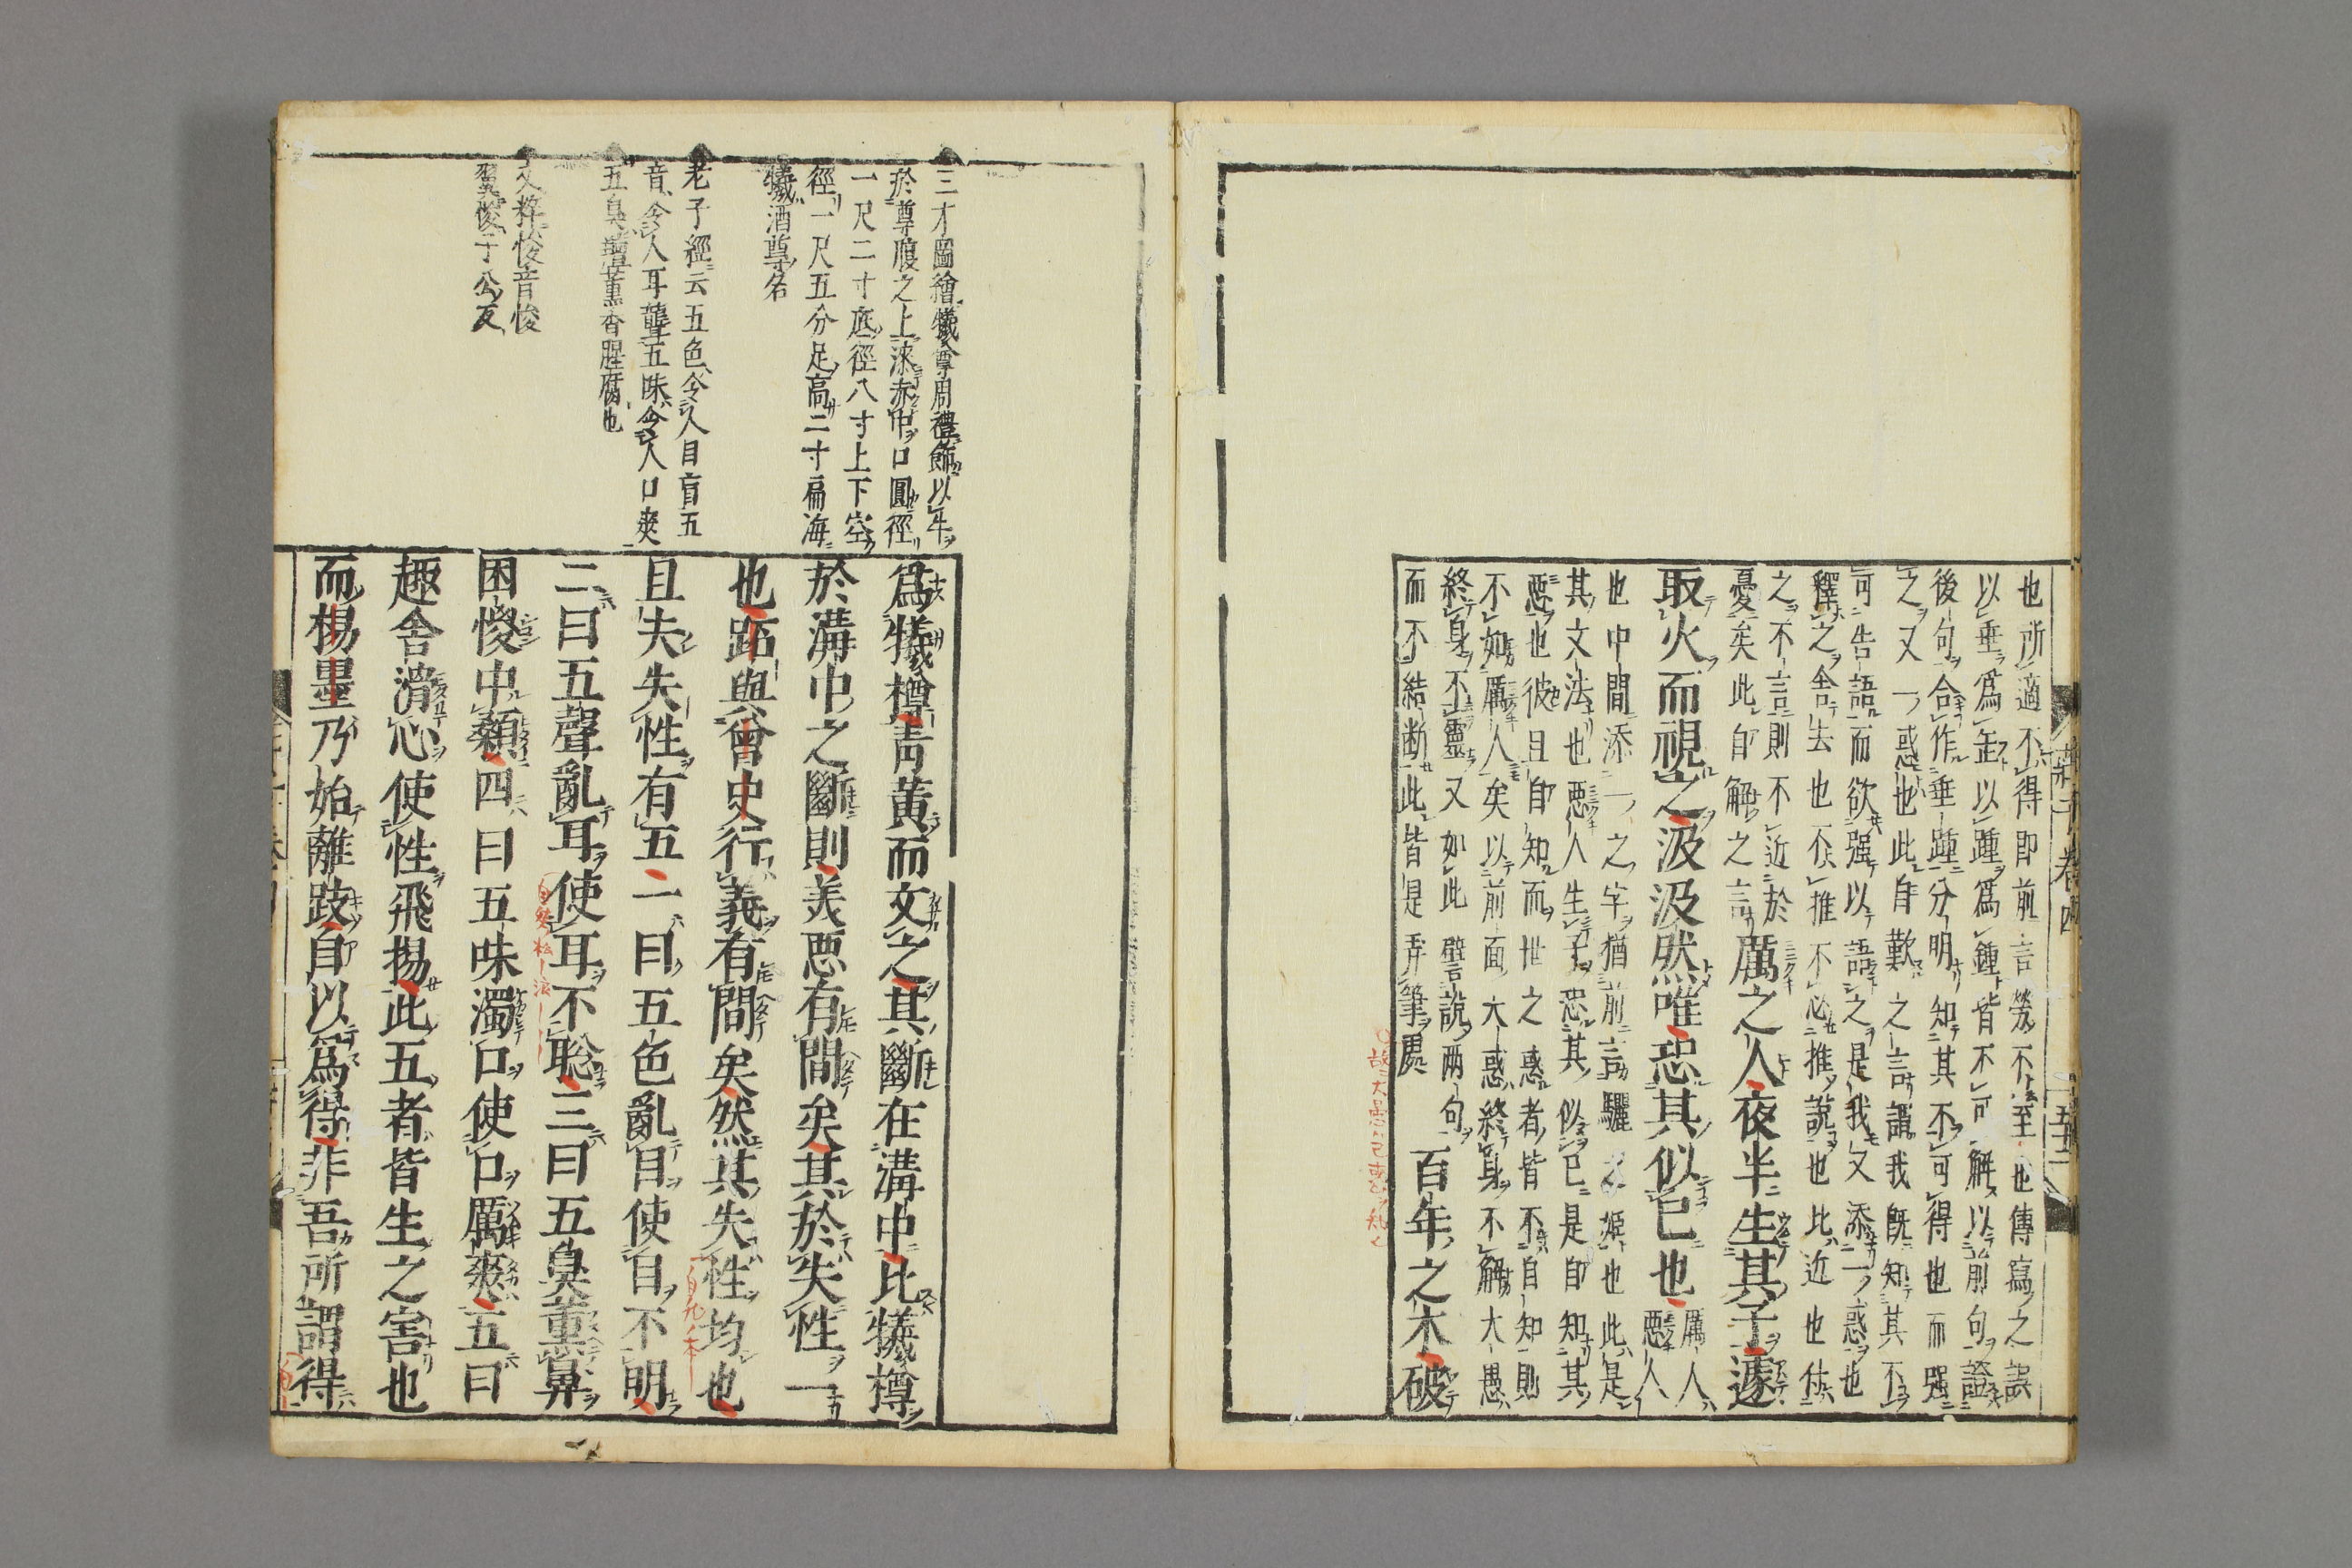 也所適不得即前言勞不至也傳寫之誤
以垂爲缶以踵爲鍾皆不可解以前句證
後句合作垂踵分明知其不可得也而强
之又一惑也此自歎之言謂我既知其不
可告語而欲强以語之是我又添一惑也
釋之舍去也不推不必推說也比近也休
之不言則不近於
憂矣此自解之言
厲之人夜半生其子遽
取火而視之汲汲然唯恐其似已也
厲人
惡人
也中間添一之字猶前言驪之姬也此是
其文法也惡人生子恐其似已是自知其
惡也彼且自知而世之惑者皆不自知則
不如厲人矣以前面大惑終身不解大愚
終身不靈又如此譬說兩句
而不結斷此皆是弄筆處
百年之木破
莊子卷四
五十二
三才圖繪犧尊周禮飾以牛
於尊腹之上漆赤中口圓徑
一尺二寸底徑八寸上下空
徑一尺五分足高二寸扁海
犧酒尊名
老子經云五色令人目盲五
音令人耳聾五味令人口爽
五臭羶薰香腥腐也
文粹悛音悛
翼悛子公反
爲犧樽靑黃而文之其斷在溝中比犧樽
於溝中之斷則美惡有間矣其於失性一
也跖與曾史行義有間矣然其失性均也
且夫失性有五一曰五色亂目使目不明
二曰五聲亂耳使耳不聡三曰五臭薰鼻
困惾中顙四曰五味濁口使口厲爽五曰
趣舍滑心使性飛揚此五者皆生之害也
而楊墨乃始離跂自以爲得非吾所謂得